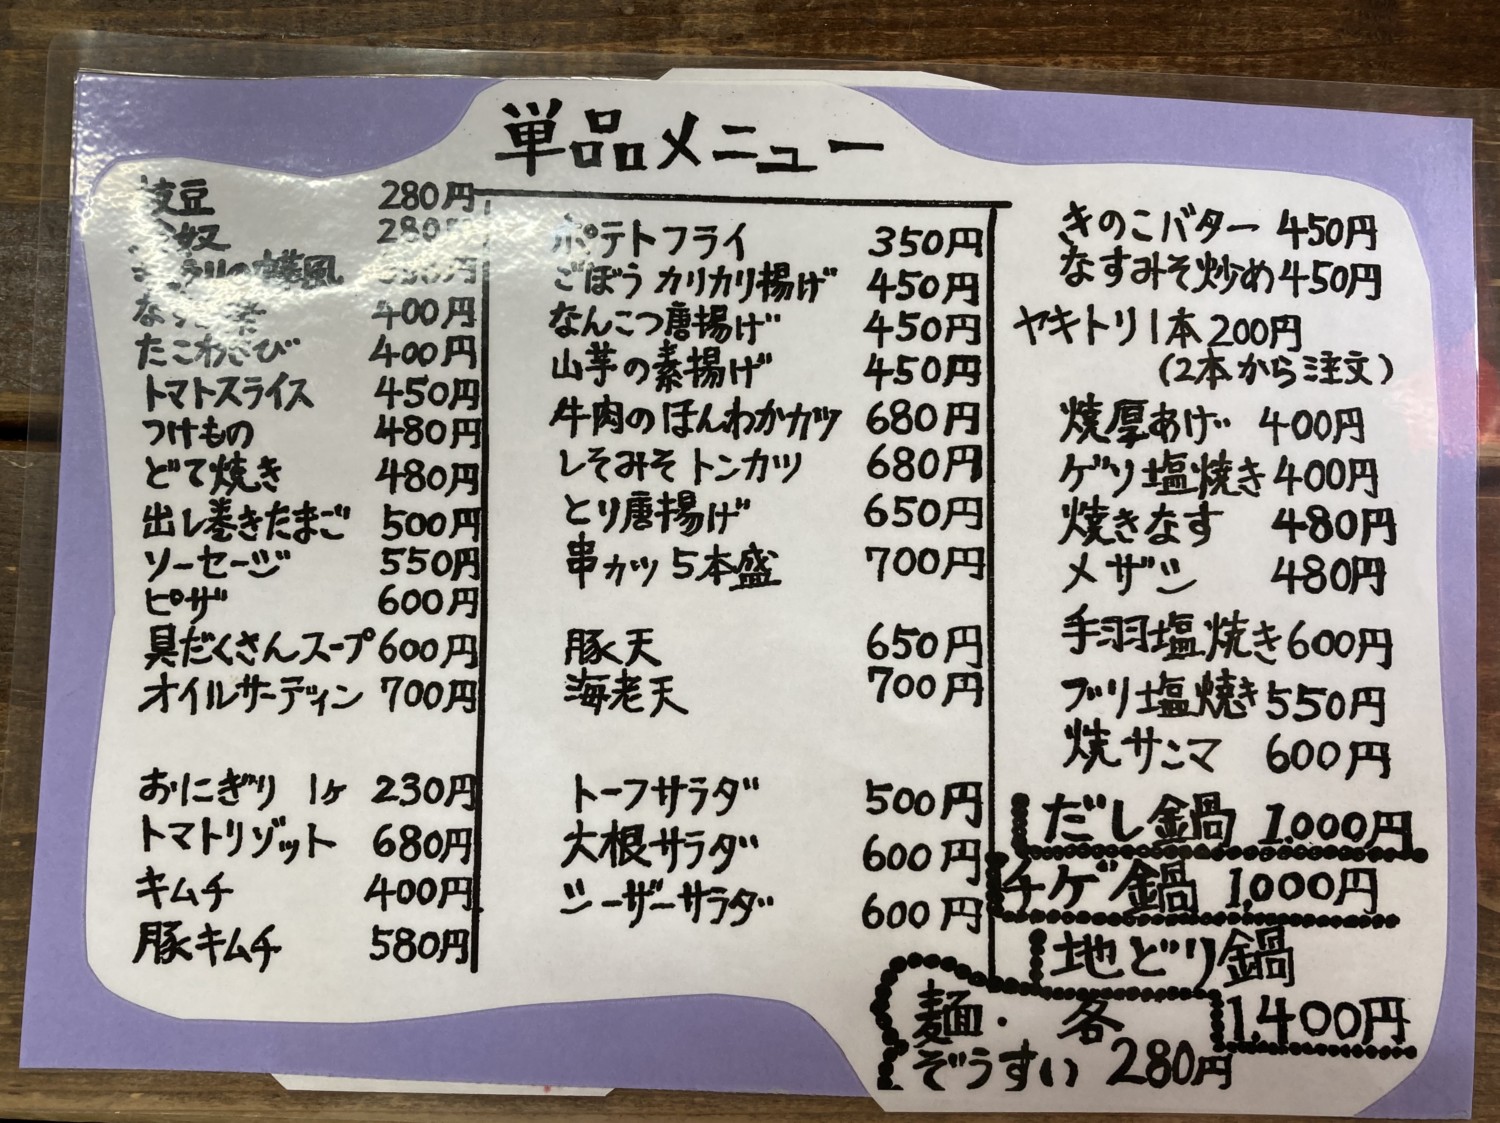 単品メニュー
枝豆 280円
奴 280円
風 円
なす 400円
たこわさび 400円
トマトスライス 450円
つけもの 480円
どて焼き 480円
出し巻きたまご 500円
ソーセージ 550円
ピザ 600円
具だくさんスープ 600円
オイルサーディン 700円
おにぎり 1ヶ 230円
トマトリゾット 680円
キムチ 400円
豚キムチ 580円
ポテトフライ 350円
ごぼうカリカリ揚げ 450円
なんこつ唐揚げ 450円
山芋の素揚げ 450円
牛肉のほんわかカツ 680円
しそみそトンカツ 680円
とり唐揚げ 650円
串カツ5本盛 700円
豚天 650円
海老天 700円
トーフサラダ 500円
大根サラダ 600円
シーザーサラダ 600円
きのこバター 450円
なすみそ炒め 450円
ヤキトリ1本 200円
(2本から注文)
焼厚あげ 400円
ゲソ塩焼き 400円
焼きなす 480円
メザシ 480円
手羽塩焼き 600円
ブリ塩焼き 550円
焼サンマ 600円
だし鍋 1.000円
チゲ鍋 1,000円
地どり鍋
1,400円
麺・ 各
ぞうすい 280円